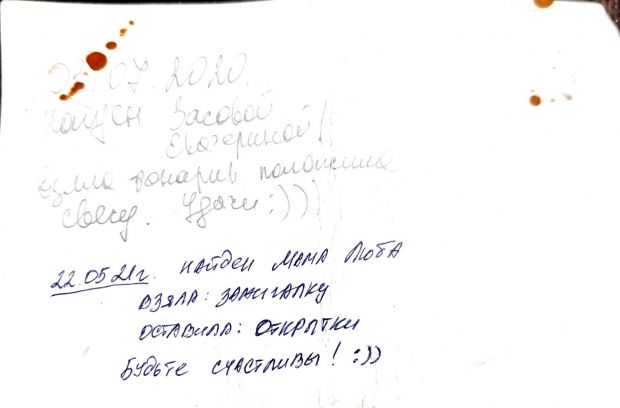 03.07.2020.
Найден Засовой
Екатериной
взяла фонарик положила
свечу. Удачи :))))
22.05 21г. НАЙДЕН МАМА ЛЮБА
ВЗЯЛА: ЗАЖИГАЛКУ
ОСТАВИЛА: ОТКРЫТКИ
БУДЬТЕ СЧАСТЛИВЫ! :))